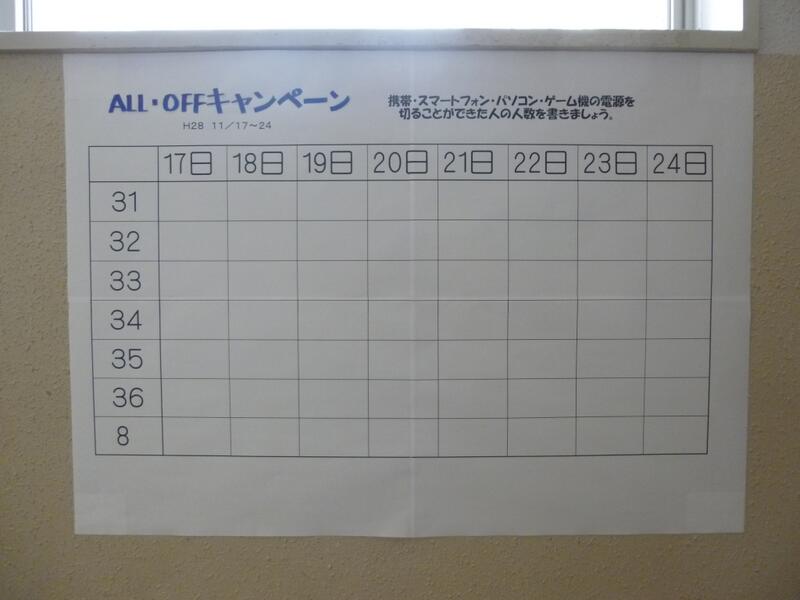 ALL・OFFキャンペーン
H28 11/17～24
携帯・スマートフォン・パソコン・ゲーム機の電源を
切ることができた人の人数を書きましょう。
17日 18日 19日 20日 21日 22日 23日 24日
31
32
33
34
35
36
8